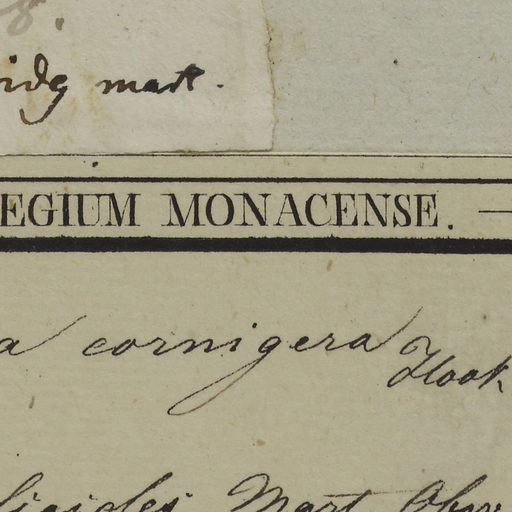 8.
idg mart.
EGIUM MONACENSE. —
a cornigera Hook
Mart. Obs